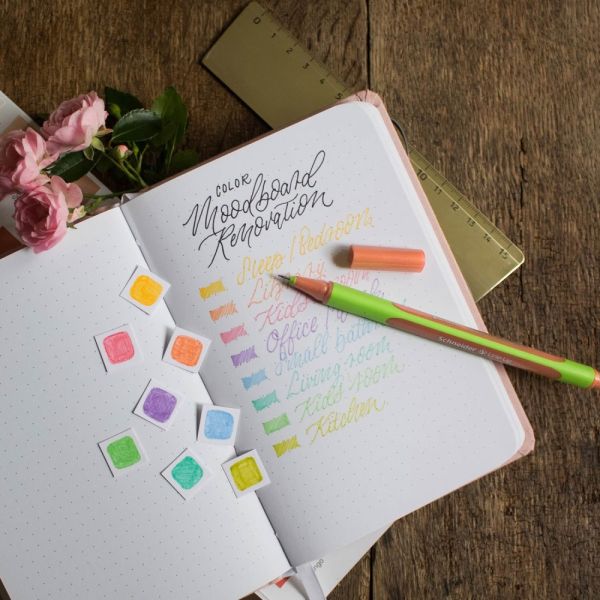 COLOR
Moodboard
Renovation
Sleep / Bedroom
Library
Kids room
Office /
Small bath
Living room
Kids room
Kitchen
Schneider
0 1 2 3 4 5
15